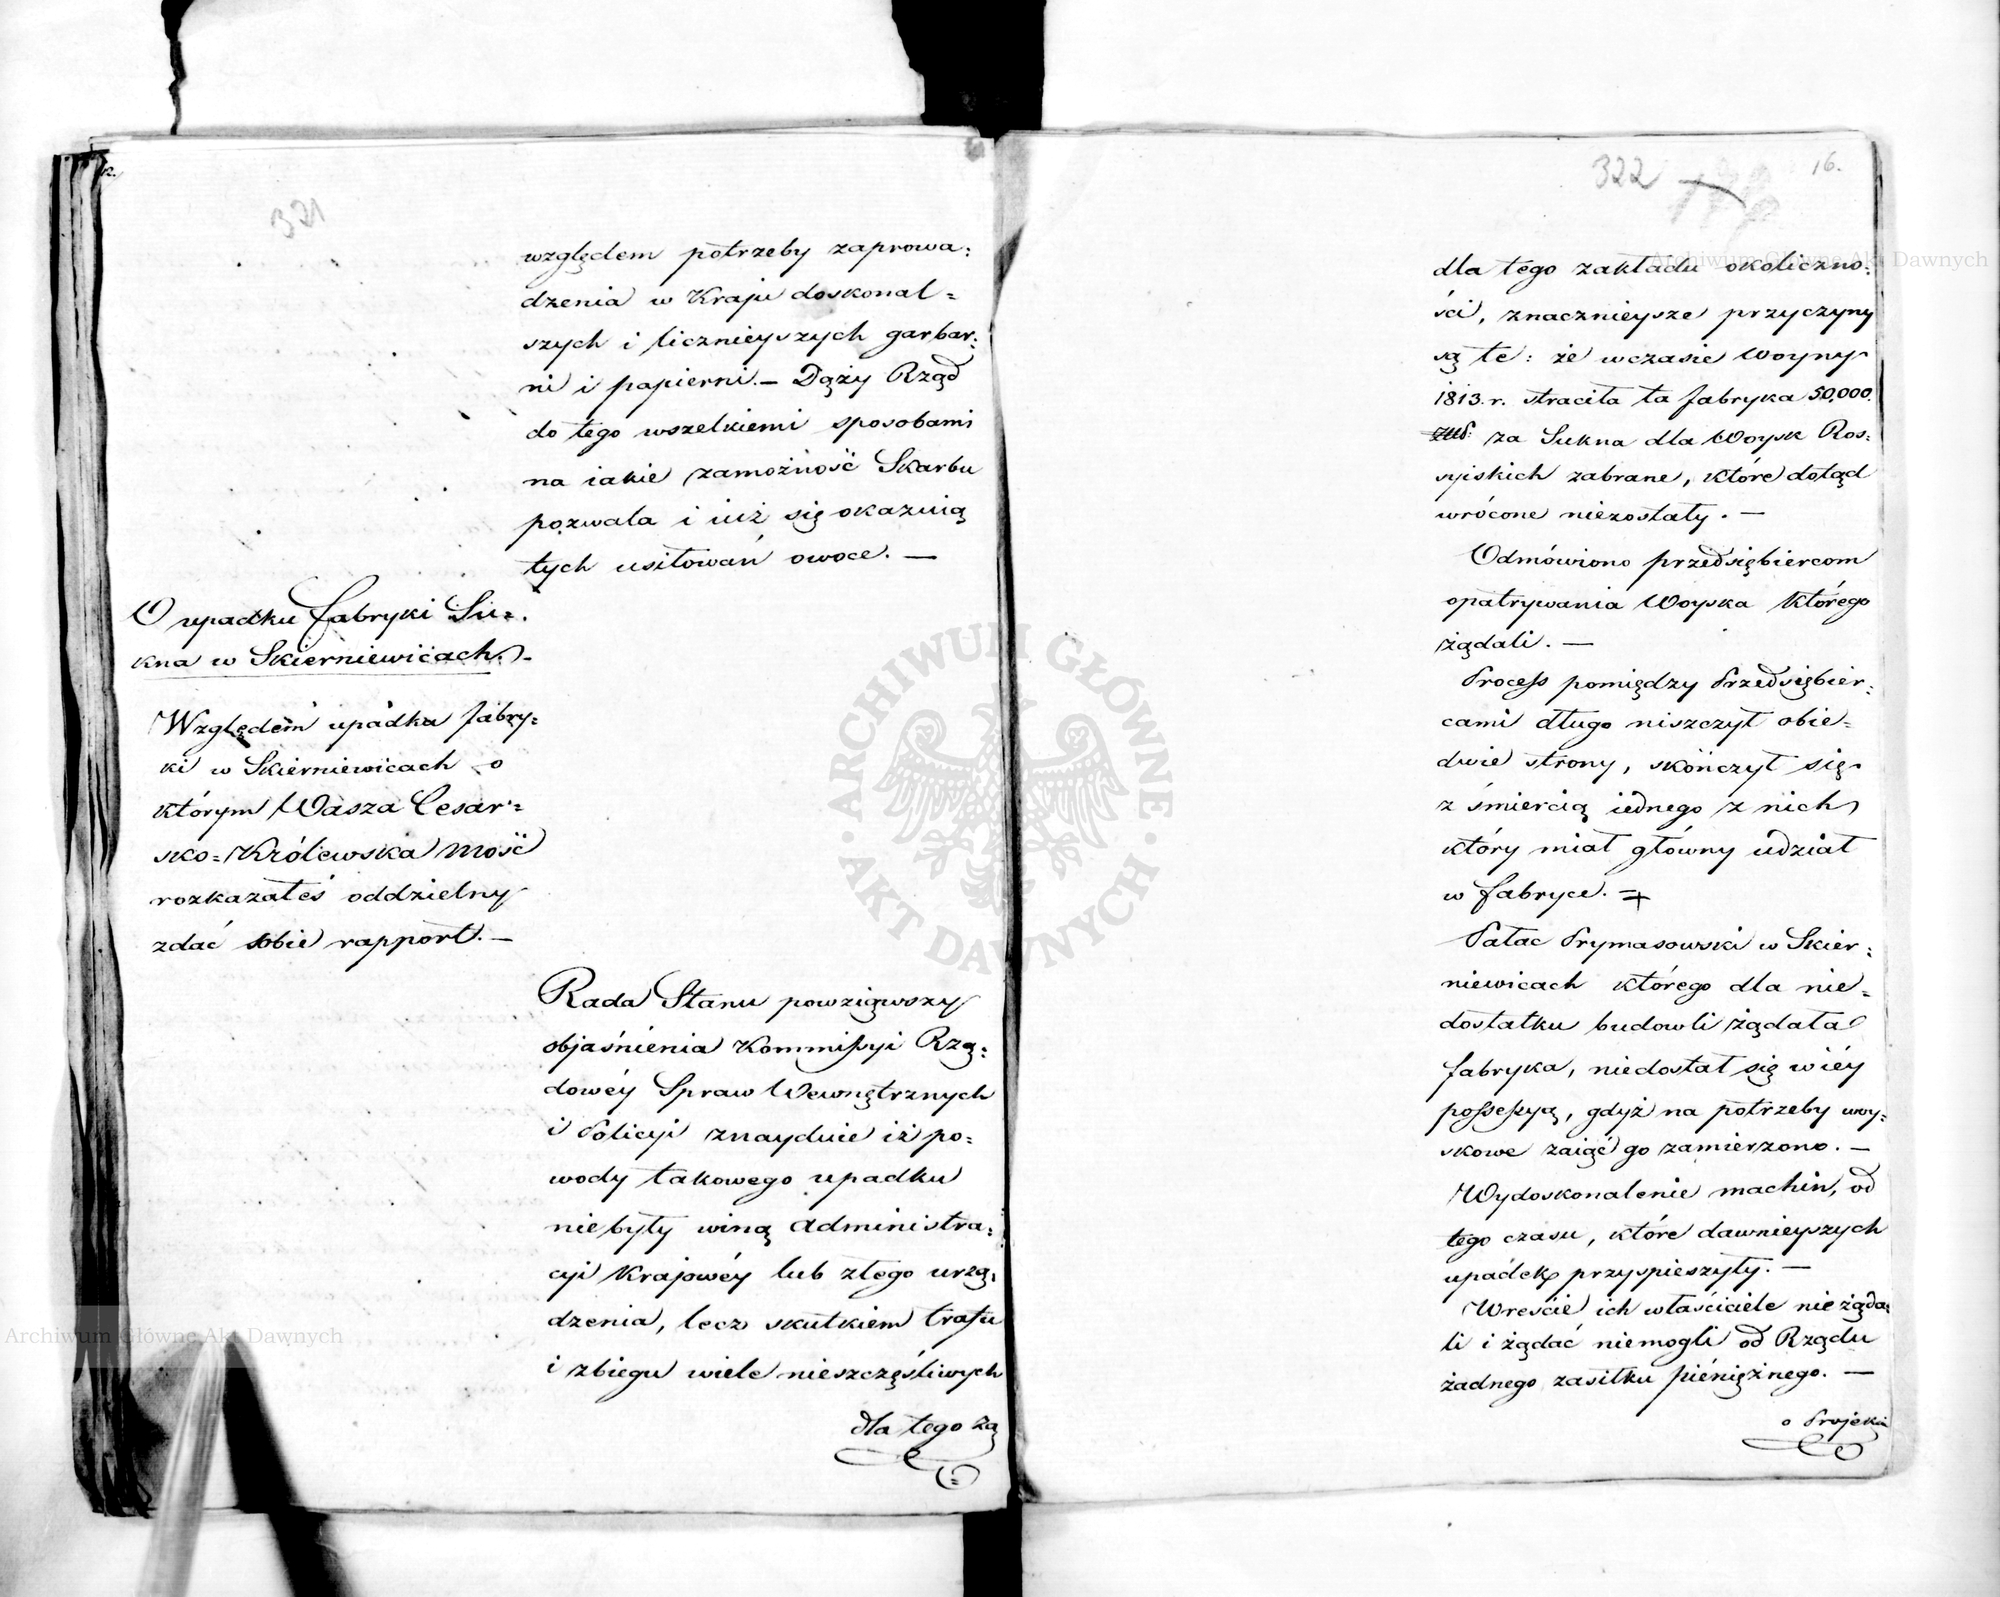 321
względem potrzeby zaprowa:
dzenia w Kraju doskonal=
szych i licznieyszych garbar:
ni i papierni. — Dąży Rząd
do tego wszelkiemi sposobami
na iakie zamożność Skarbu
pozwala i iuż się okazuią
tych usiłowań owoce. —
O upadku fabryki Su=
kna w Skierniewicach. -
Względem upadku fabry=
ki w Skierniewicach o
którym Wasza Cesar=
sko=Królewska Mość
rozkazałeś oddzielny
zdać sobie rapport. —
Rada Stanu powziąwszy
objaśnienia Kommissyi Rzą:
dowéy Spraw Wewnętrznych
i Policyi znayduie iż po=
wody takowego upadku
niebyły winą Administra:
cyi Krajowéy lub złego urzą:
dzenia, lecz skutkiem trafu
i zbiegu wiele nieszczęśliwych
dla tego za
322
16.
dla tego zakładu okoliczno:
ści, znacznieysze przyczyny
są te: że wczasie Woyny
1813. r. straciła ta fabryka 50,000.
za Sukna dla Woysk Ros:
syiskich zabrane, które dotąd
wrócone niezostały. —
Odmówiono przedsiębiercom
opatrywania Woyska którego
żądali. —
Process pomiędzy Przedsiębier:
cami długo niszczył obie=
dwie strony, skończył się
z śmiercią iednego z nich
który miał główny udział
w fabryce.
Pałac Prymasowski w Skier:
niewicach którego dla nie=
dostatku budowli żądała
fabryka, niedostał się w iéy
possessyą, gdyż na potrzeby woy:
skowe zaiąć go zamierzono. —
Wydoskonalenie machin, od
tego czasu, które dawnieyszych
upadek przyspieszyły. —
Wreście ich właściciele nie żąda:
li i żądać niemogli od Rządu
żadnego zasiłku pieniężnego. —
o Projekcie
ARCHIWUM GŁÓWNE · AKT DAWNYCH ·
Archiwum Główne Akt Dawnych
Archiwum Główne Akt Dawnych